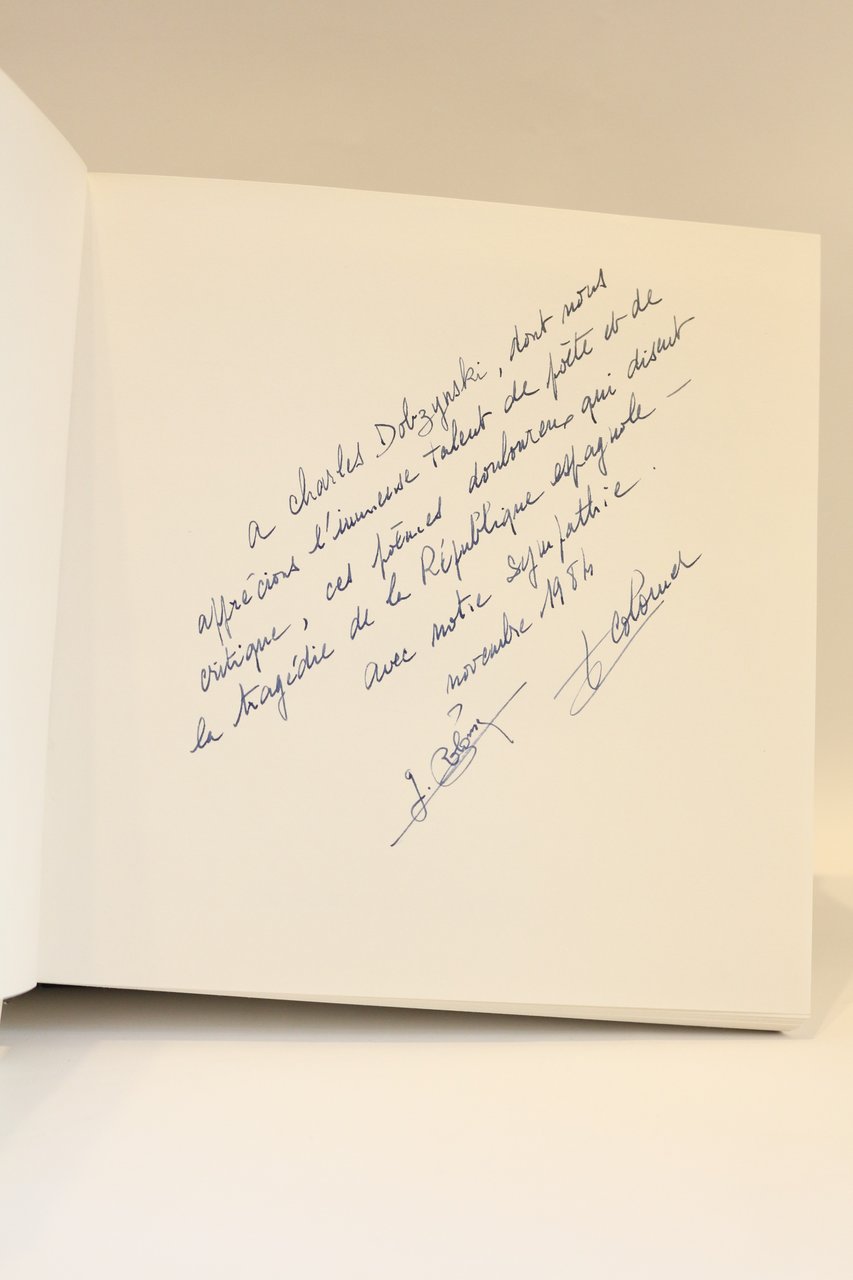 a Charles Dobzynski, dont nous
apprécions l'immense talent de poète et de
critique, ces poèmes douloureux qui disent
la tragédie de la République espagnole —
avec notre sympathie.
novembre 1984